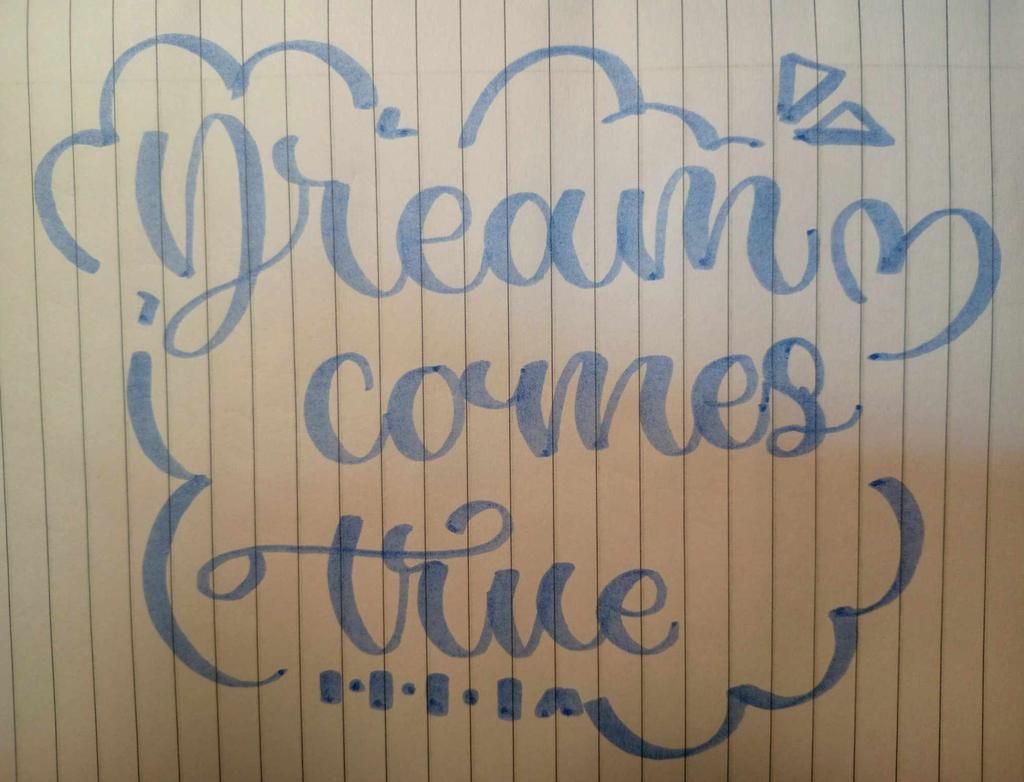 Dream
comes
true